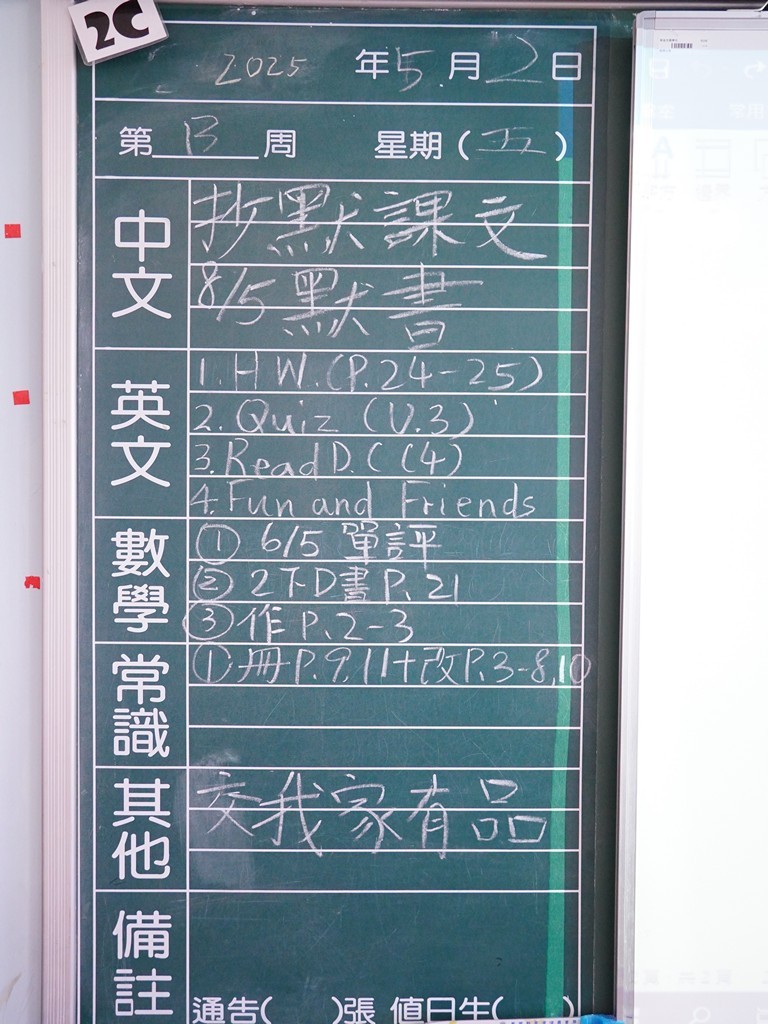 2C
2025 年5月2日
第 B 周 星期(五)
中文
抄默課文
8/5 默書
英文
1. H W. (P.24-25)
2. Quiz (U.3)
3. Read D.C (C4)
4. Fun and Friends
數學
① 6/5 單評
② 2下D書P.21
③ 作P.2-3
常識
① 冊P.9,11+改P.3-8,10
其他
交我家有品
備註
通告( )張 值日生( )